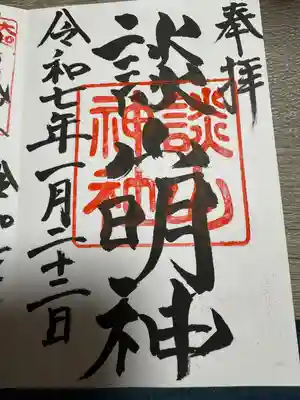 奉拝
談山明神
談山
神社
令和七年一月二十二日